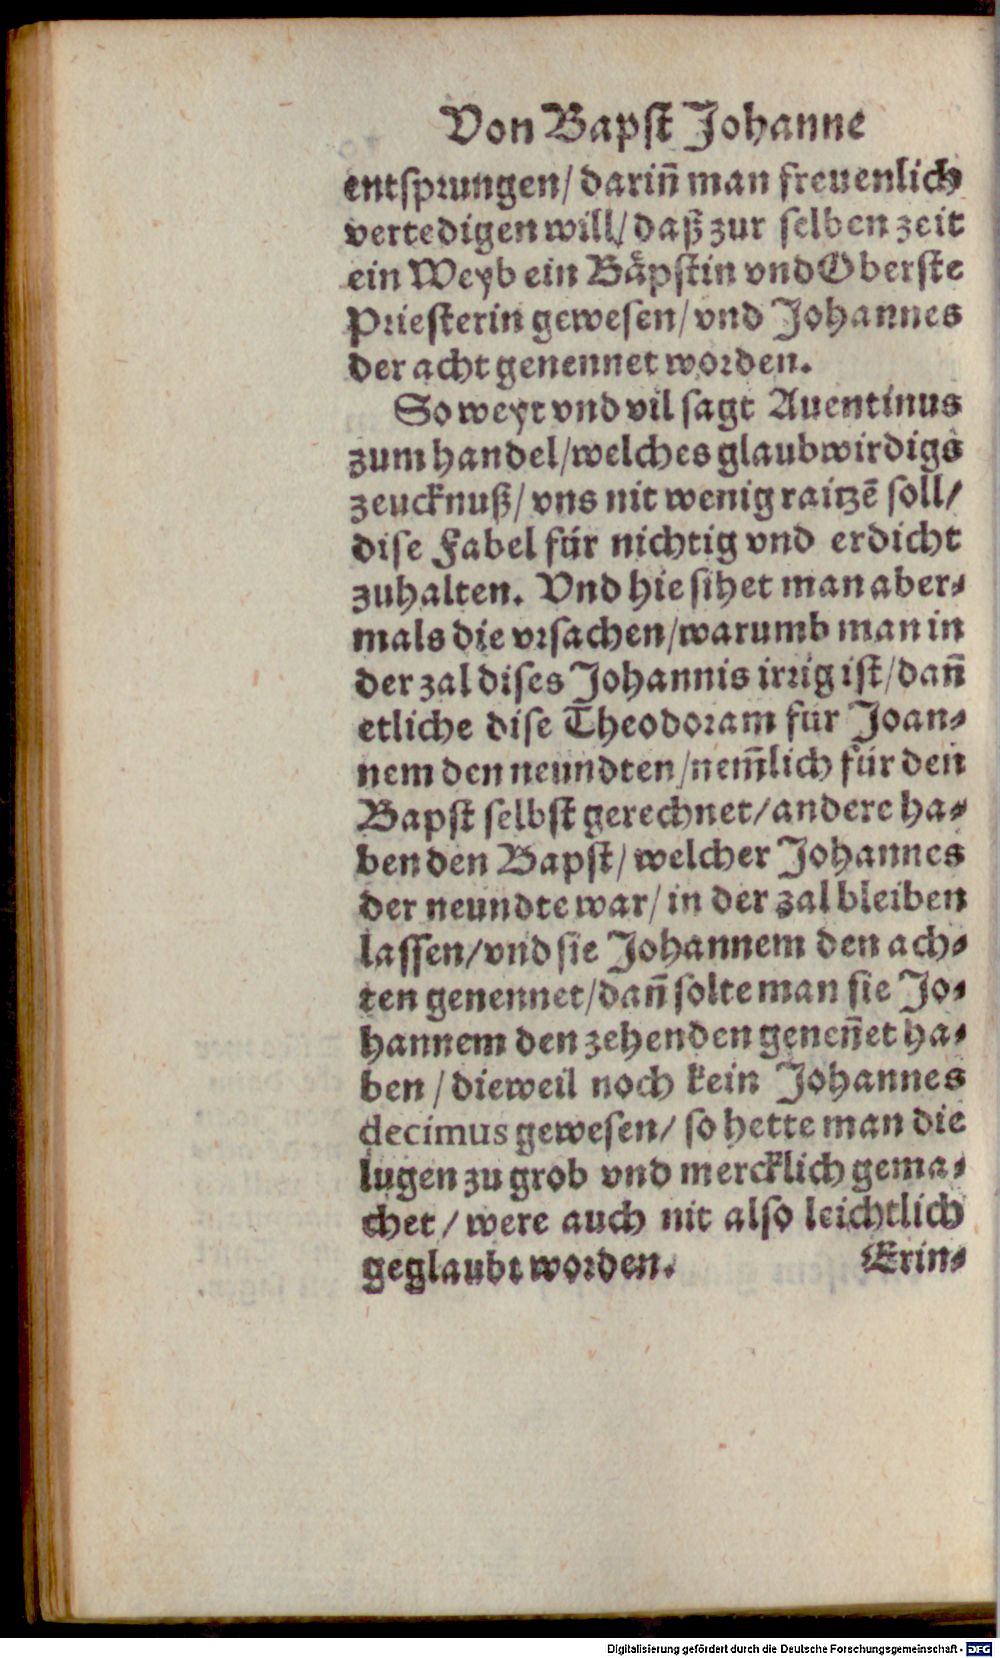 Von Bapst Johanne
entsprungen/ dariñ man freuenlich
vertedigen will/ daß zur selben zeit
ein Weyb ein Bäpstin vnd Oberste
Priesterin gewesen/ vnd Johannes
der acht genennet worden.
So weyt vnd vil sagt Auentinus
zum handel/welches glaubwirdigs
zeucknuß/ vns nit wenig raitzē soll/
dise Fabel für nichtig vnd erdicht
zuhalten. Vnd hie sihet man aber-
mals die vrsachen/warumb man in
der zal dises Johannis irrig ist/dañ
etliche dise Theodoram für Joan-
nem den neundten/nem̃lich für den
Bapst selbst gerechnet/andere ha-
ben den Bapst/ welcher Johannes
der neundte war/ in der zal bleiben
lassen/vnd sie Johannem den ach-
ten genennet/dañ solte man sie Jo-
hannem den zehenden geneñet ha-
ben/ dieweil noch kein Johannes
decimus gewesen/ so hette man die
lugen zu grob vnd mercklich gema-
chet/ were auch nit also leichtlich
geglaubt worden. Erin-
Digitalisierung gefördert durch die Deutsche Forschungsgemeinschaft - DFG